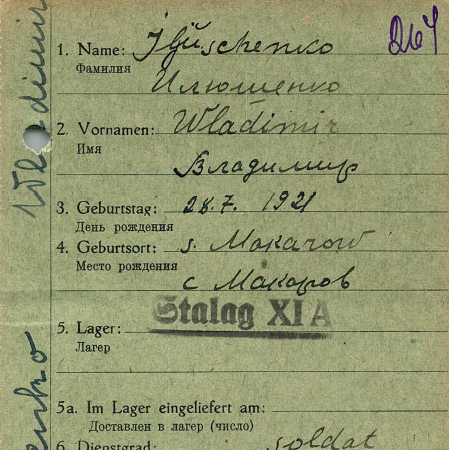 264
1. Name: Iljuschenko
Фамилия
Илюшенко
2. Vornamen: Wladimir
Имя
Владимир
3. Geburtstag: 28.7. 1921
День рождения
4. Geburtsort: s. Makarow
Место рождения
с Макаров
Stalag XI A
5. Lager:
Лагер
5a. Im Lager eingeliefert am:
Доставлен в лагер (число)
6. Dienstgrad: soldat
Wladimir
enko